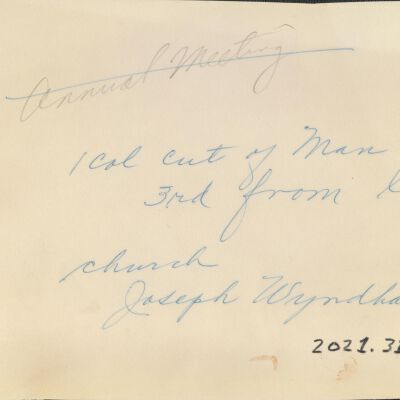 Annual Meeting
1 col cut of Man
3rd from
church
Joseph Wyndha
2021.31